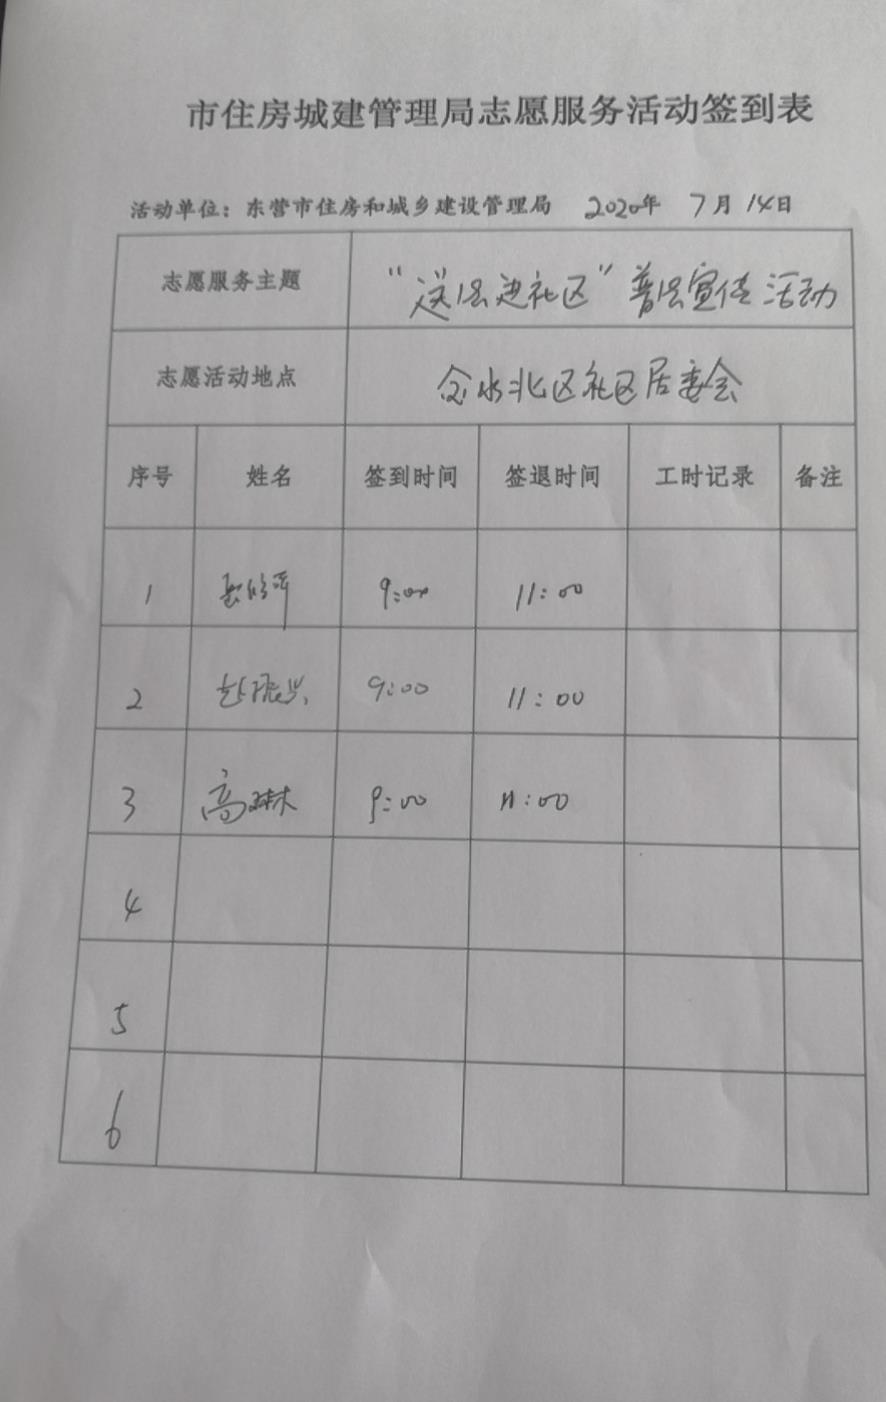 市住房城建管理局志愿服务活动签到表
活动单位：东营市住房和城乡建设管理局 2020年 7月14日
志愿服务主题 “送法进社区”普法宣传活动
志愿活动地点 水北区社区居委会
序号 姓名 签到时间 签退时间 工时记录 备注
1 9:00 11:00
2 赵振兴 9:00 11:00
3 高琳 9:00 11:00
4
5
6